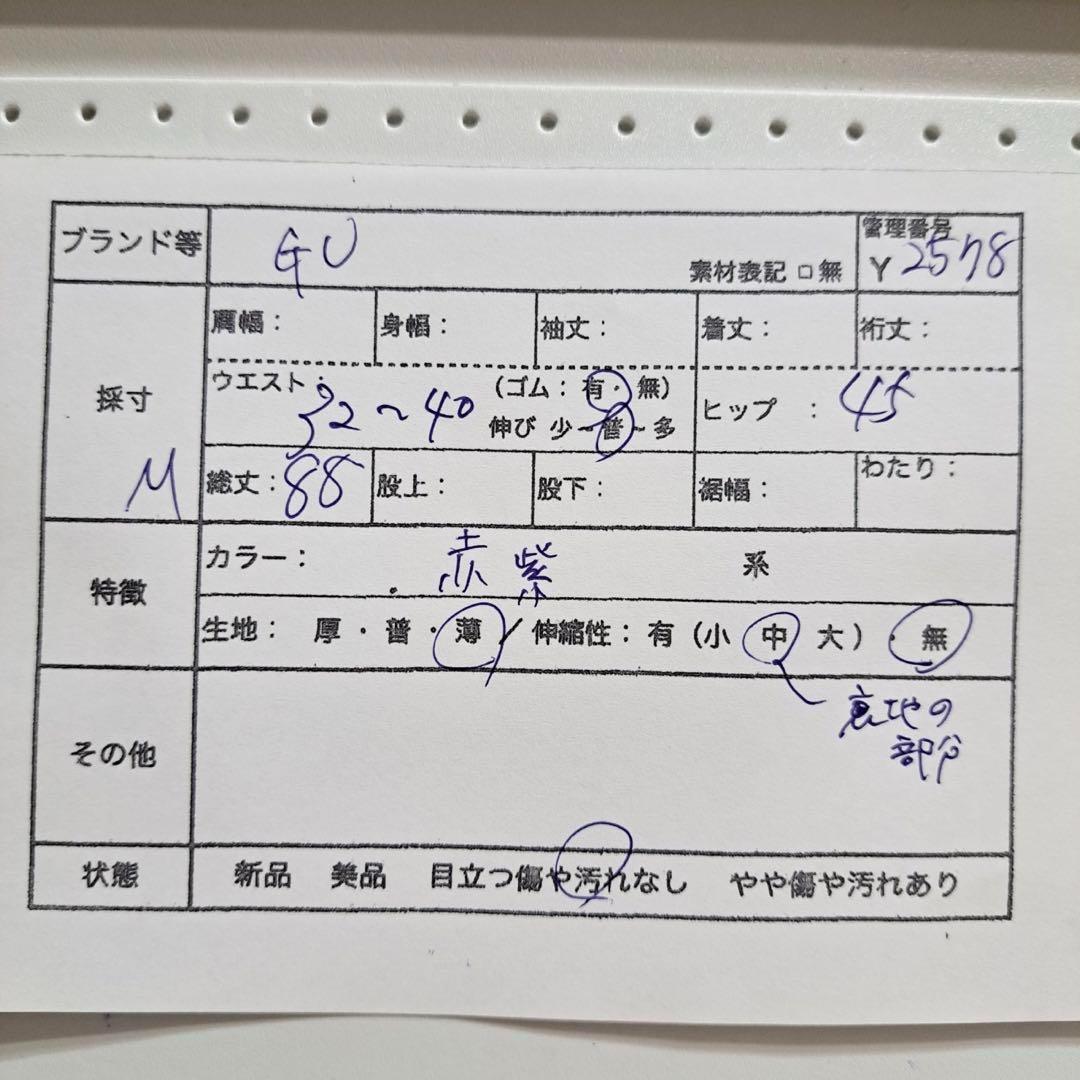 ブランド等 GU 素材表記 □ 無 管理番号
Y 2578
採寸 M
肩幅： 身幅： 袖丈： 着丈： 裄丈：
ウエスト： 32～40 （ゴム： 有・ 無） ヒップ ： 45
伸び 少～普～多
総丈：88 股上： 股下： 裾幅： わたり：
特徴
カラー： 赤紫 系
生地： 厚・普・薄／伸縮性：有（小 中 大）・無
裏地の
部分
その他
状態 新品 美品 目立つ傷や汚れなし やや傷や汚れあり